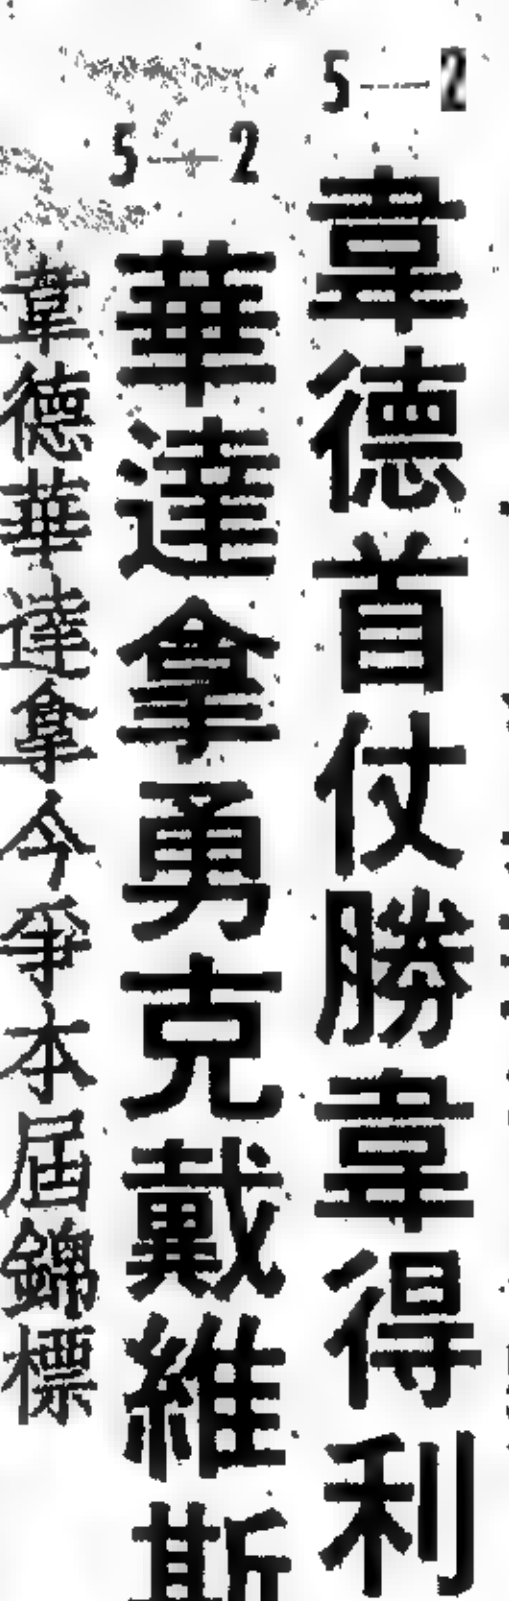 5—2
韋德首仗勝韋得利
5—2
華達拿勇克戴維斯
韋德華達拿今爭本屆錦標